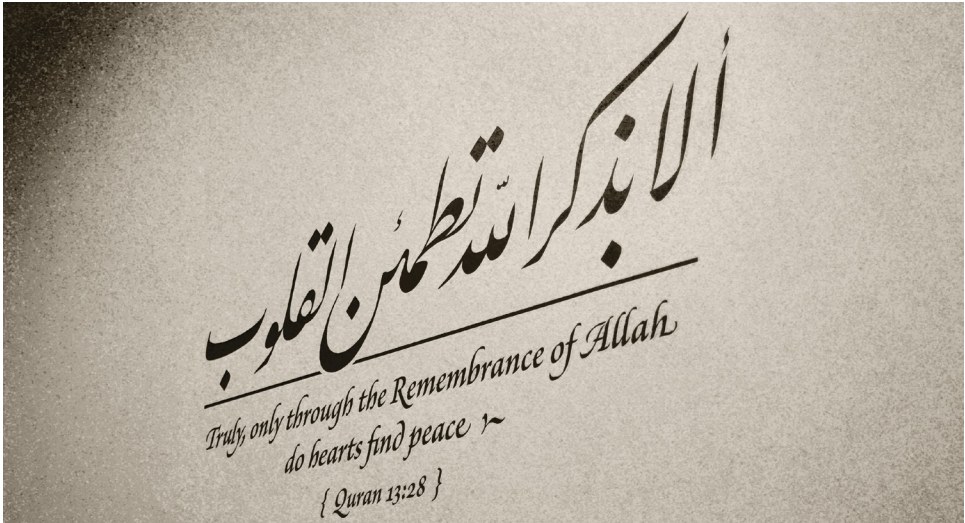 ألا بذكر الله تطمئن القلوب
Truly, only through the Remembrance of Allah
do hearts find peace
{ Quran 13:28 }